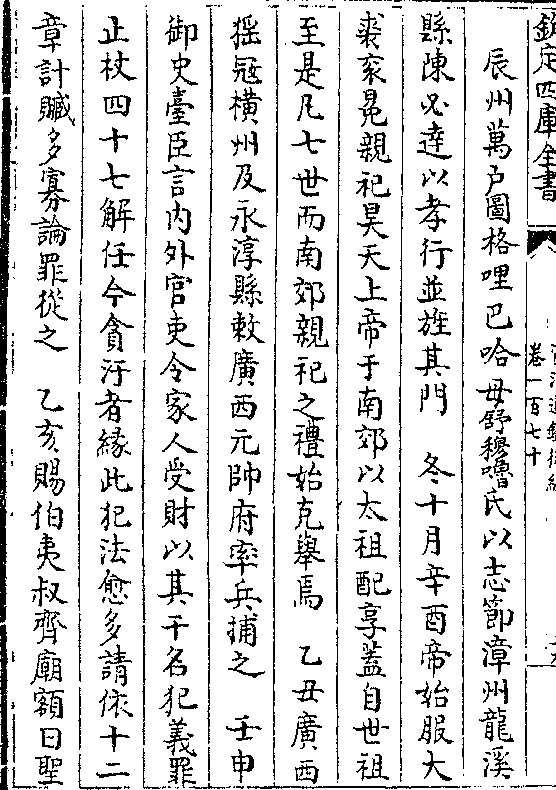 欽定四庫全書
卷一百七十
辰州萬戸圖格哩巴哈母舒穆嚕氏以志節漳州龍溪
縣陳必達以孝行並旌其門　冬十月辛酉帝始服大
裘衮冕親祀昊天上帝于南郊以太祖配享蓋自世祖
至是凡七世而南郊親祀之禮始克舉焉　乙丑廣西
猺冦橫州及永淳縣敕廣西元帥府率兵捕之　壬申
御史臺臣言内外官吏令家人受財以其干名犯義罪
止杖四十七解任今貪汙者緣此犯法愈多請依十二
章計贓多寡論罪從之　乙亥賜伯夷叔齊廟額曰聖